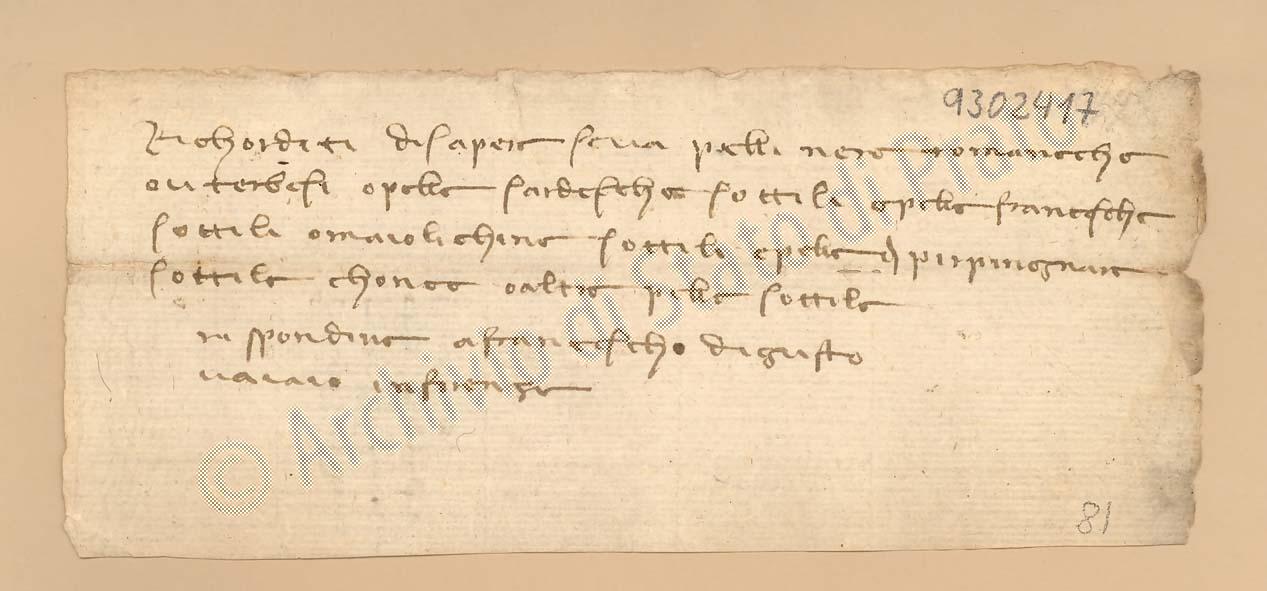 9302417
Richorditi di sapere se va pelli nere romanesche
o viterbesi o pelle sardesche sottili e pelle francesche
sottili o maiolichine sottili e pelle di pirpingnare
sottile chonce o altre pelle sottile
rispondine a francescho di gusto
vaiaio in firenze
81
© Archivio di Stato di Prato